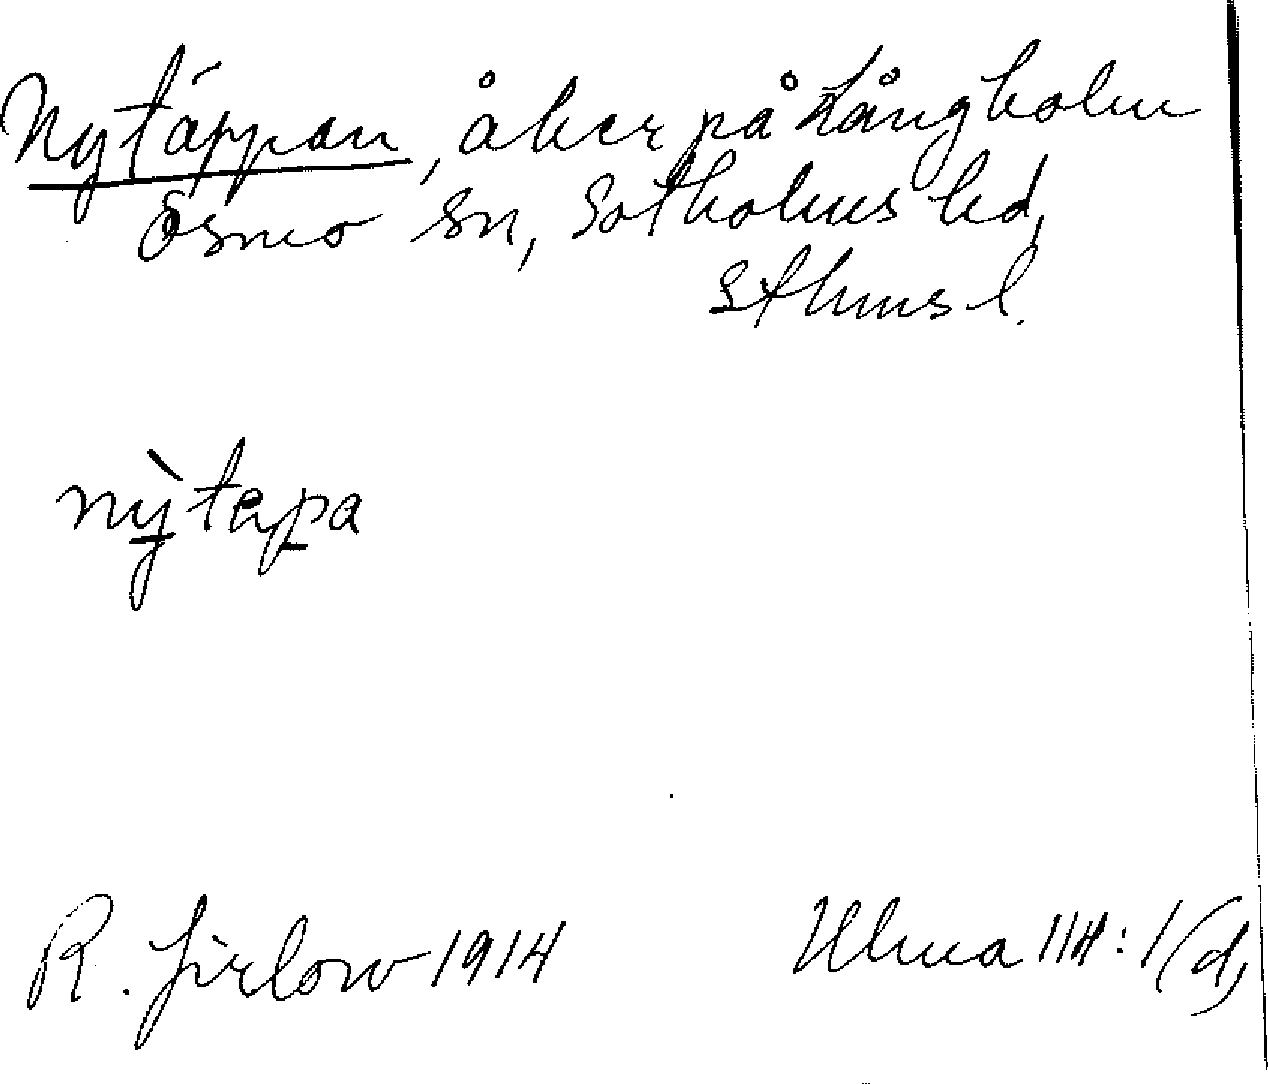 Nytäppan, åker på Långholm
Ösmo sn, Sotholms hd,
Sthms l.
nỳtepa
R. Jirlow 1914
Ulma 114: 1(d)